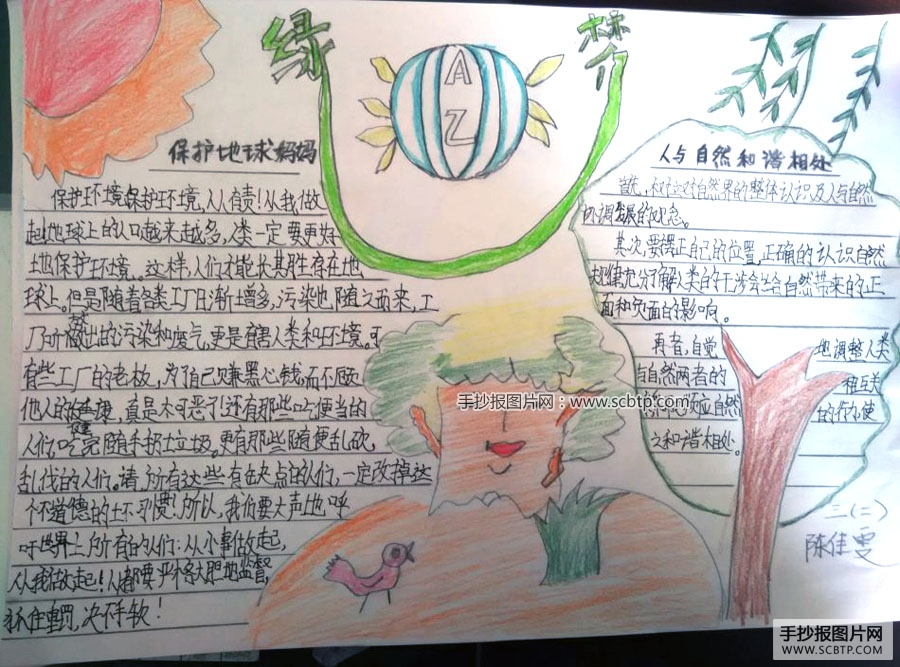 绿
梦
A
Z
保护地球妈妈
保护环境保护环境,人人有责!从我做
起!地球上的人口越来越多,人类一定要更好
地保护环境。这样,人们才能长其月生存在地
球上。但是随着各类工厂日渐增多,污染也随之而来,工
厂所做出的污染和废气,更是有害人类和环境。可
有些工厂的老板,为了自己赚黑心钱而不顾
他人的健康,真是太可恶了!还有那些吃便当的
人们吃完随手扔垃圾。更有那些随便乱砍
乱伐的人们。请所有这些有缺点的人们,一定改掉这
个不道德的坏习惯!所以,我们要大声地呼
吁世界上所有的人们:从小事做起,
从我做起!人人都要严格大胆地监督,
抓住重罚,决不手软!
人与自然和谐相处
首先,树立对自然界的整体认识及人与自然
协调发展的观念。
其次,要摆正自己的位置,正确的认识自然
规律充分了解人类的干涉会给自然带来的正
面和负面的影响。
再者,自觉 地调整人类
与自然两者的 相互关
顺应自然 的行为使
之和谐相处。
手抄报图片网:www.scbtp.com
三(二)
陈佳雯
手抄报图片网
WWW.SCBTP.COM